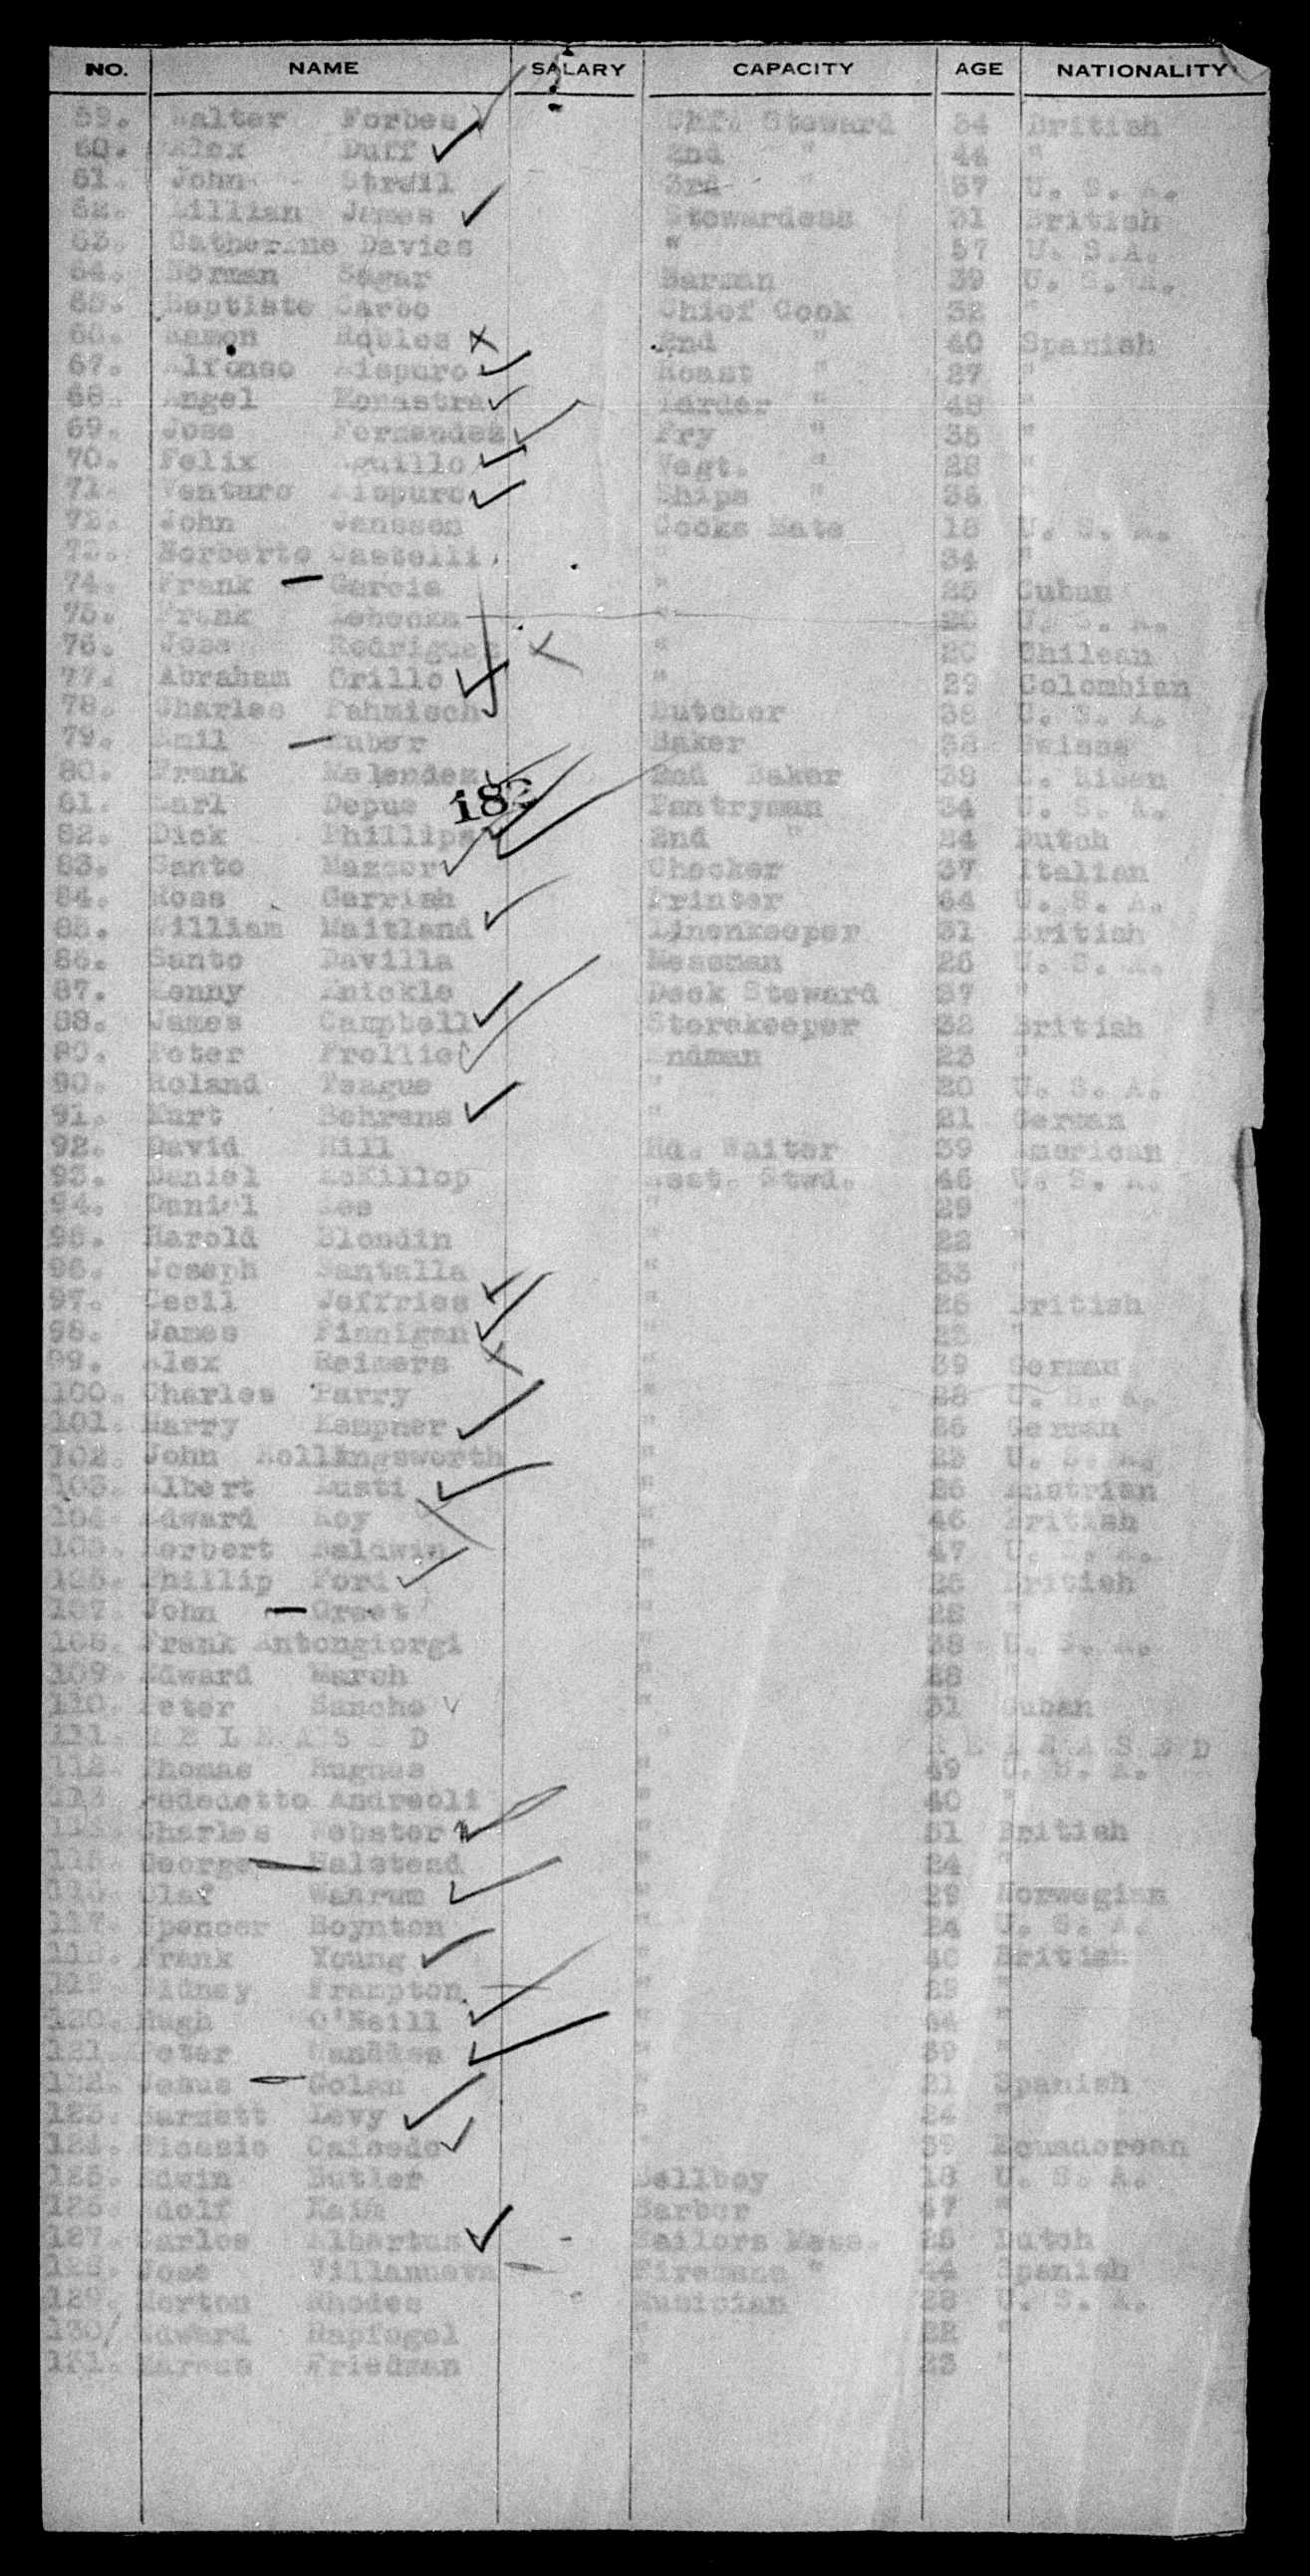 NO. NAME SALARY CAPACITY AGE NATIONALITY
59. Walter Forbes Chf. Steward 34 British
60. Alex Duff 2nd " 44 "
61. John 3rd " 37 U. S. A.
62. Lillian James Stewardess 31 British
63. Catherine Davies " 57 U. S.A.
64. Norman Sagar Barman 39 U. S. A.
65. Baptiste Carbo Chief Cook 32 "
66. Ramon Robles 2nd " 40 Spanish
67. Alfonso Aispuro Roast " 27 "
68. Angel Larder " 48 "
69. Jose Fernandez Fry " 35 "
70. Felix Aguillo Vegt. " 28 "
71. Venturo Aispuro Ships " 35 "
72. John Janssen Cooks Mate 18 U. S. A.
73. Norberto Castelli " 34 "
74. Frank Garcia " 25 Cuban
75. Frank " U. S. A.
76. Jose Rodriguez " 20 Chilean
77. Abraham Grillo " 29 Colombian
78. Charles Fahmisch Butcher 38 U. S. A.
79. Emil Huber Baker 38 Swiss
80. Frank Melendez 2nd Baker 39 P. Rican
182
81. Earl Depue Pantryman 34 U. S. A.
82. Dick Phillips 2nd " 24 Dutch
83. Santo Checker 37 Italian
84. Ross Gerrish Printer 64 U. S. A.
85. William Maitland Linenkeeper 31 British
86. Santo Davilla Messman 26 U. S. A.
87. Kenny Knickle Deck Steward 37 "
88. James Campbell Storekeeper 32 British
89. Peter Endman 23 "
90. Roland Teague " 20 U. S. A.
91. Kurt Behrens " 21 German
92. David Hill Hd. Waiter 39 American
93. Daniel McKillop Asst. Stwd. 46 U. S. A.
94. Daniel Lee " 29 "
95. Harold Blondin " 22 "
96. Joseph Santalla " 33 "
97. Cecil Jeffries " 26 British
98. James Finnigan " "
99. Alex Reimers " 39 German
100. Charles Parry " 28 U. S. A.
101. Harry Kempner " 26 German
102. John Hollingsworth " 23 U. S. A.
103. Albert " 26 Austrian
104. Edward Roy " 46 British
105. Herbert Baldwin " 47 U. S. A.
106. Phillip Ford " 26 British
107. John " 28 "
108. Frank Antongiorgi " 38 U. S. A.
109. Edward March " 28 "
110. Peter Sancho " 31 Cuban
111. R E L E A S E D " R E L E A S E D
112. Thomas Hughes " 49 U. S. A.
113. Andreoli " 40 "
114. Charles Webster " 31 British
115. George Halstead " 24 "
116. Olaf Wahrum " 29 Norwegian
117. Spencer Boynton " 24 U. S. A.
118. Frank Young " 40 British
119. Sidney Frampton " 29 "
120. Hugh O'Neill " "
121. Peter " 39 "
122. Jesus Golan " 21 Spanish
123. Barnett Levy " 24 "
124. Caicedo " 39 Ecuadorean
125. Edwin Butler Bellboy 18 U. S. A.
126. Adolf Barber 47 "
127. Carlos Albertus Sailors Mess. 25 Dutch
128. Jose Villanueva Firemans " 44 Spanish
129. Morton Rhodes Musician 28 U. S. A.
130/ Edward Rapfogel " 22 "
131. Marcus Friedman " 23 "